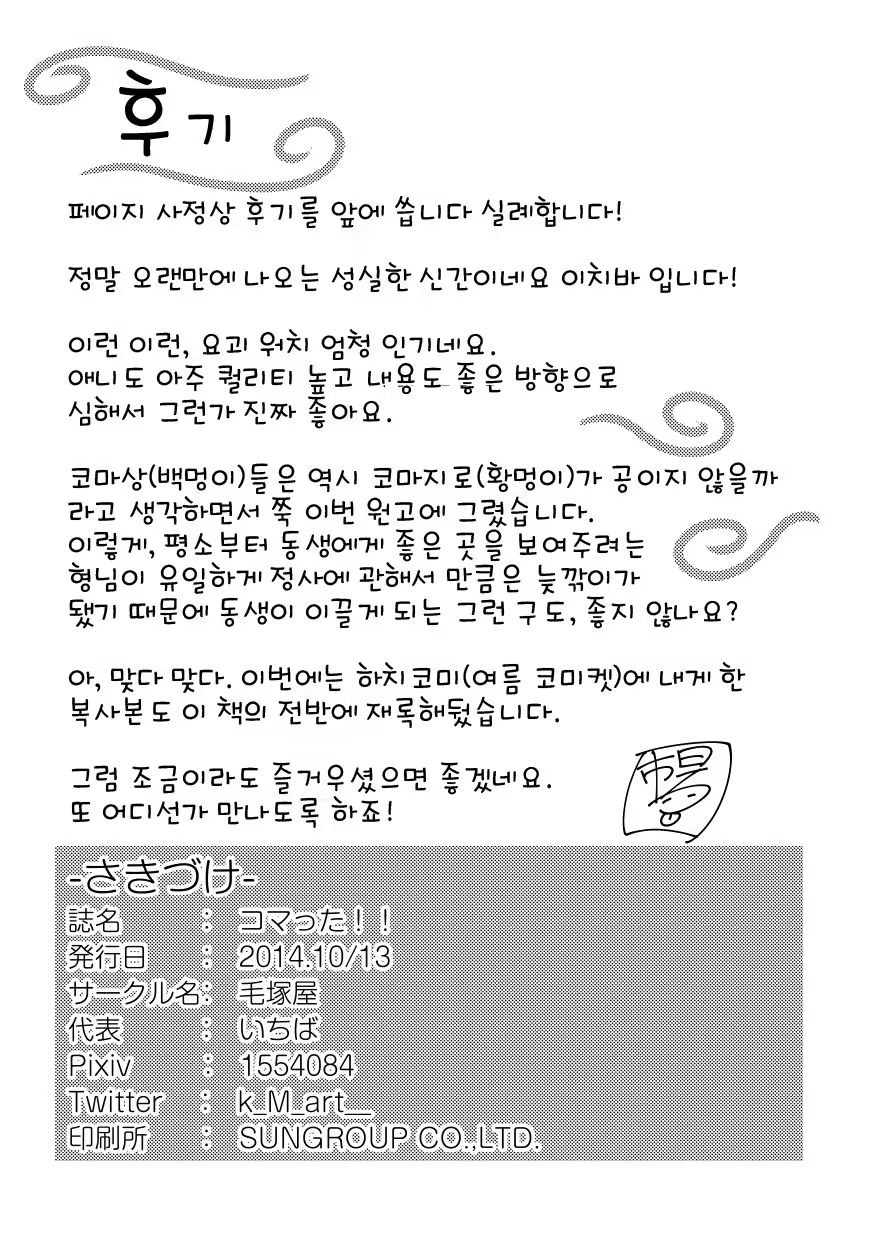 후기
페이지 사정상 후기를 앞에 씁니다 실례합니다!
정말 오랜만에 나오는 성실한 신간이네요 이치바 입니다!
이런 이런, 요괴 워치 엄청 인기네요.
애니도 아주 퀄리티 높고 내용도 좋은 방향으로
심해서 그런가 진짜 좋아요.
코마상(백멍이)들은 역시 코마지로(황멍이)가 공이지 않을까
라고 생각하면서 쭉 이번 원고에 그렸습니다.
이렇게, 평소부터 동생에게 좋은 곳을 보여주려는
형님이 유일하게 정사에 관해서 만큼은 늦깎이가
됐기 때문에 동생이 이끌게 되는 그런 구도, 좋지 않나요?
아, 맞다 맞다. 이번에는 하치코미(여름 코미켓)에 내게 한
복사본도 이 책의 전반에 재록해뒀습니다.
그럼 조금이라도 즐거우셨으면 좋겠네요.
또 어디선가 만나도록 하죠!
-さきづけ-
誌名 : コマった！！
発行日 : 2014.10/13
サークル名: 毛塚屋
代表 : いちば
Pixiv : 1554084
Twitter : k_M_art__
印刷所 : SUNGROUP CO.,LTD.